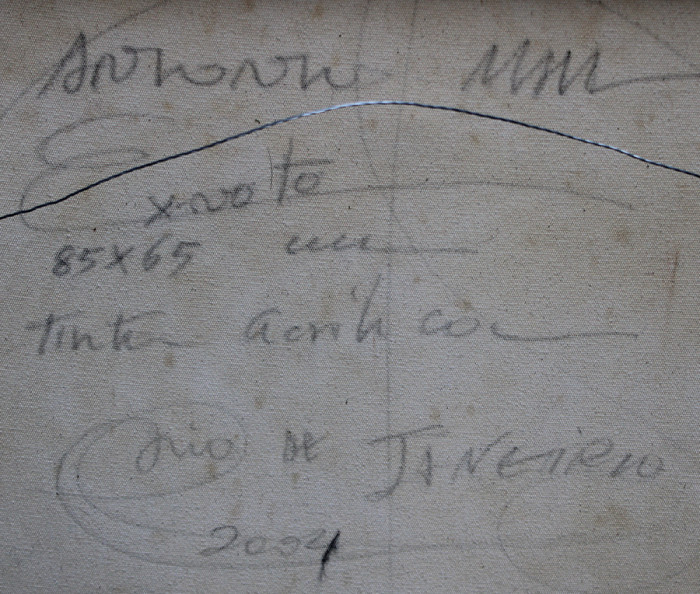 Antonio Maia
Ex-voto
85x65 cm
tinta acrílica
Rio DE JANEIRO
2004